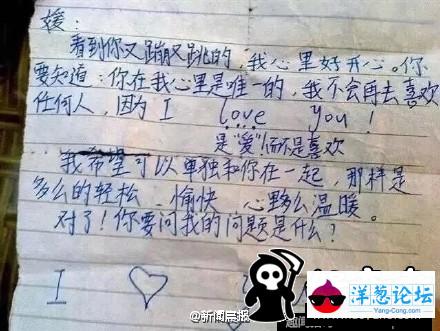 媛：
看到你又蹦又跳的，我心里好开心。你
要知道：你在我心里是唯一的，我不会再去喜欢
任何人，因为 I love you！
是“爱”而不是喜欢
我希望可以单独和你在一起，那样是
多么的轻松、愉快 心多么温暖。
对了！你要问我的问题是什么？
I ♡
@新闻晨报
洋葱论坛
Yang-Cong.com